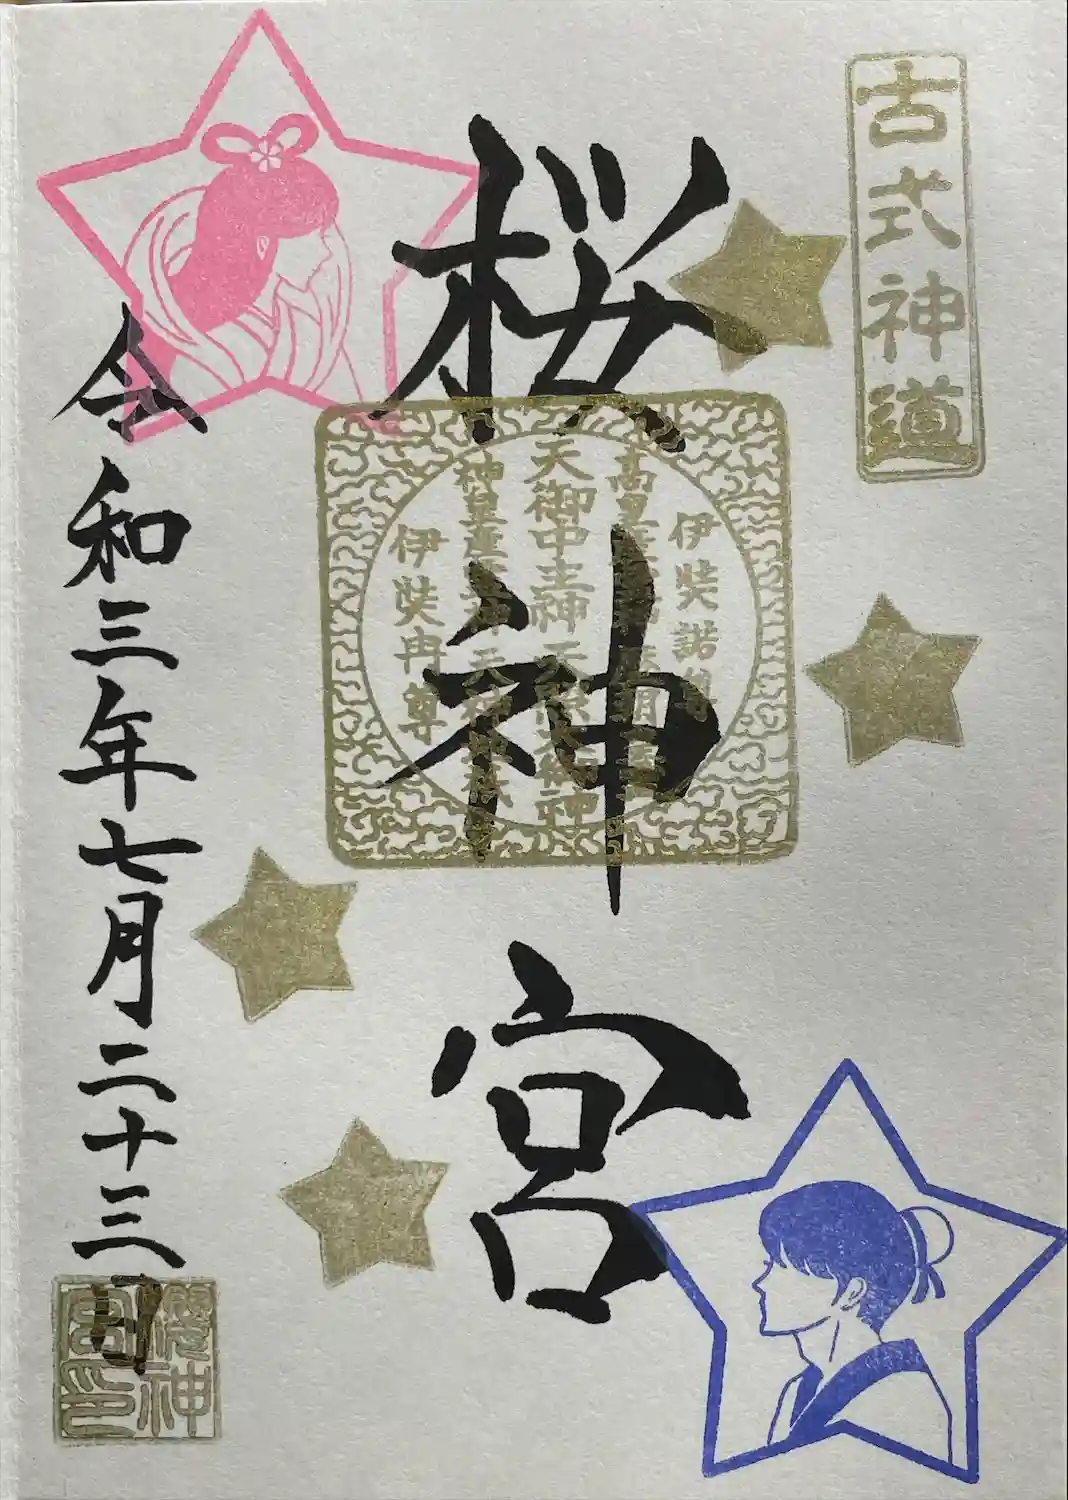 古式神道
桜神宮
伊弉諾尊
天御中主神 天照大神
神皇産霊神
伊弉冉尊
令和三年七月二十三日
櫻神宮印